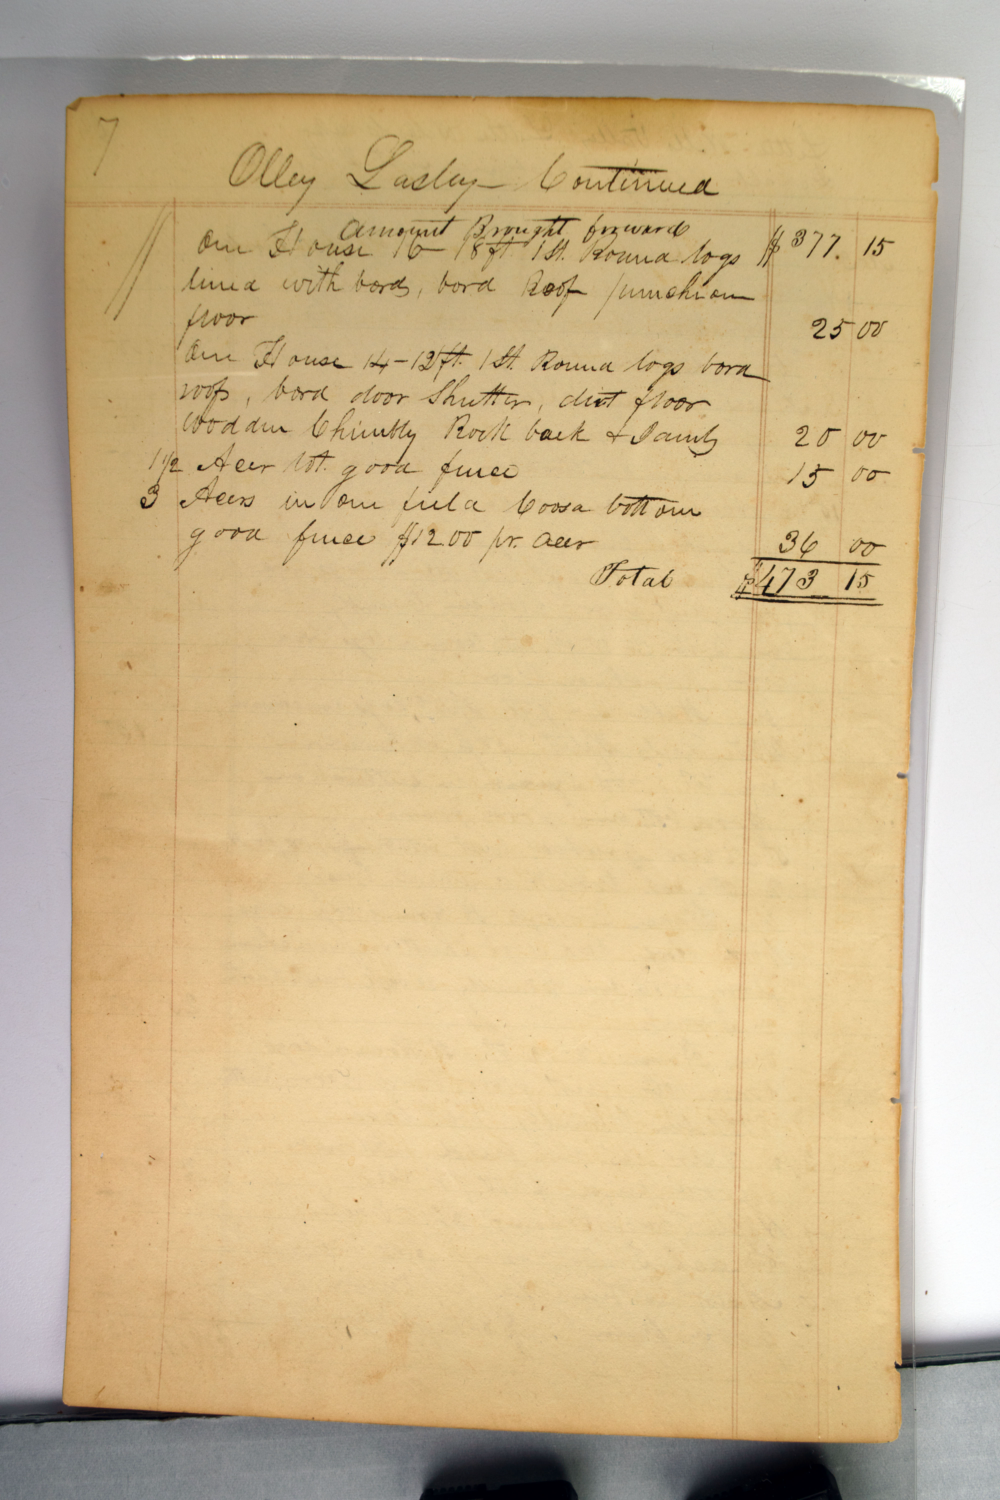 7
Olley Lasley Continued
Amount Brought forward
One House 16 - 18 ft. 1 St. Round logs $ 377. 15
lined with bords, bord Roof punchion
floor 25 00
One House 14 - 12 ft. 1 St. Round logs bord
roof, bord door Shutter, dirt floor
wodden Chimbly Rock back & Jambs 20 00
1 1/2 Acer lot good fence 15 00
3 Acers in one field Coosa bottom
good fence $12.00 pr. acer 36 00
Total $ 473 15